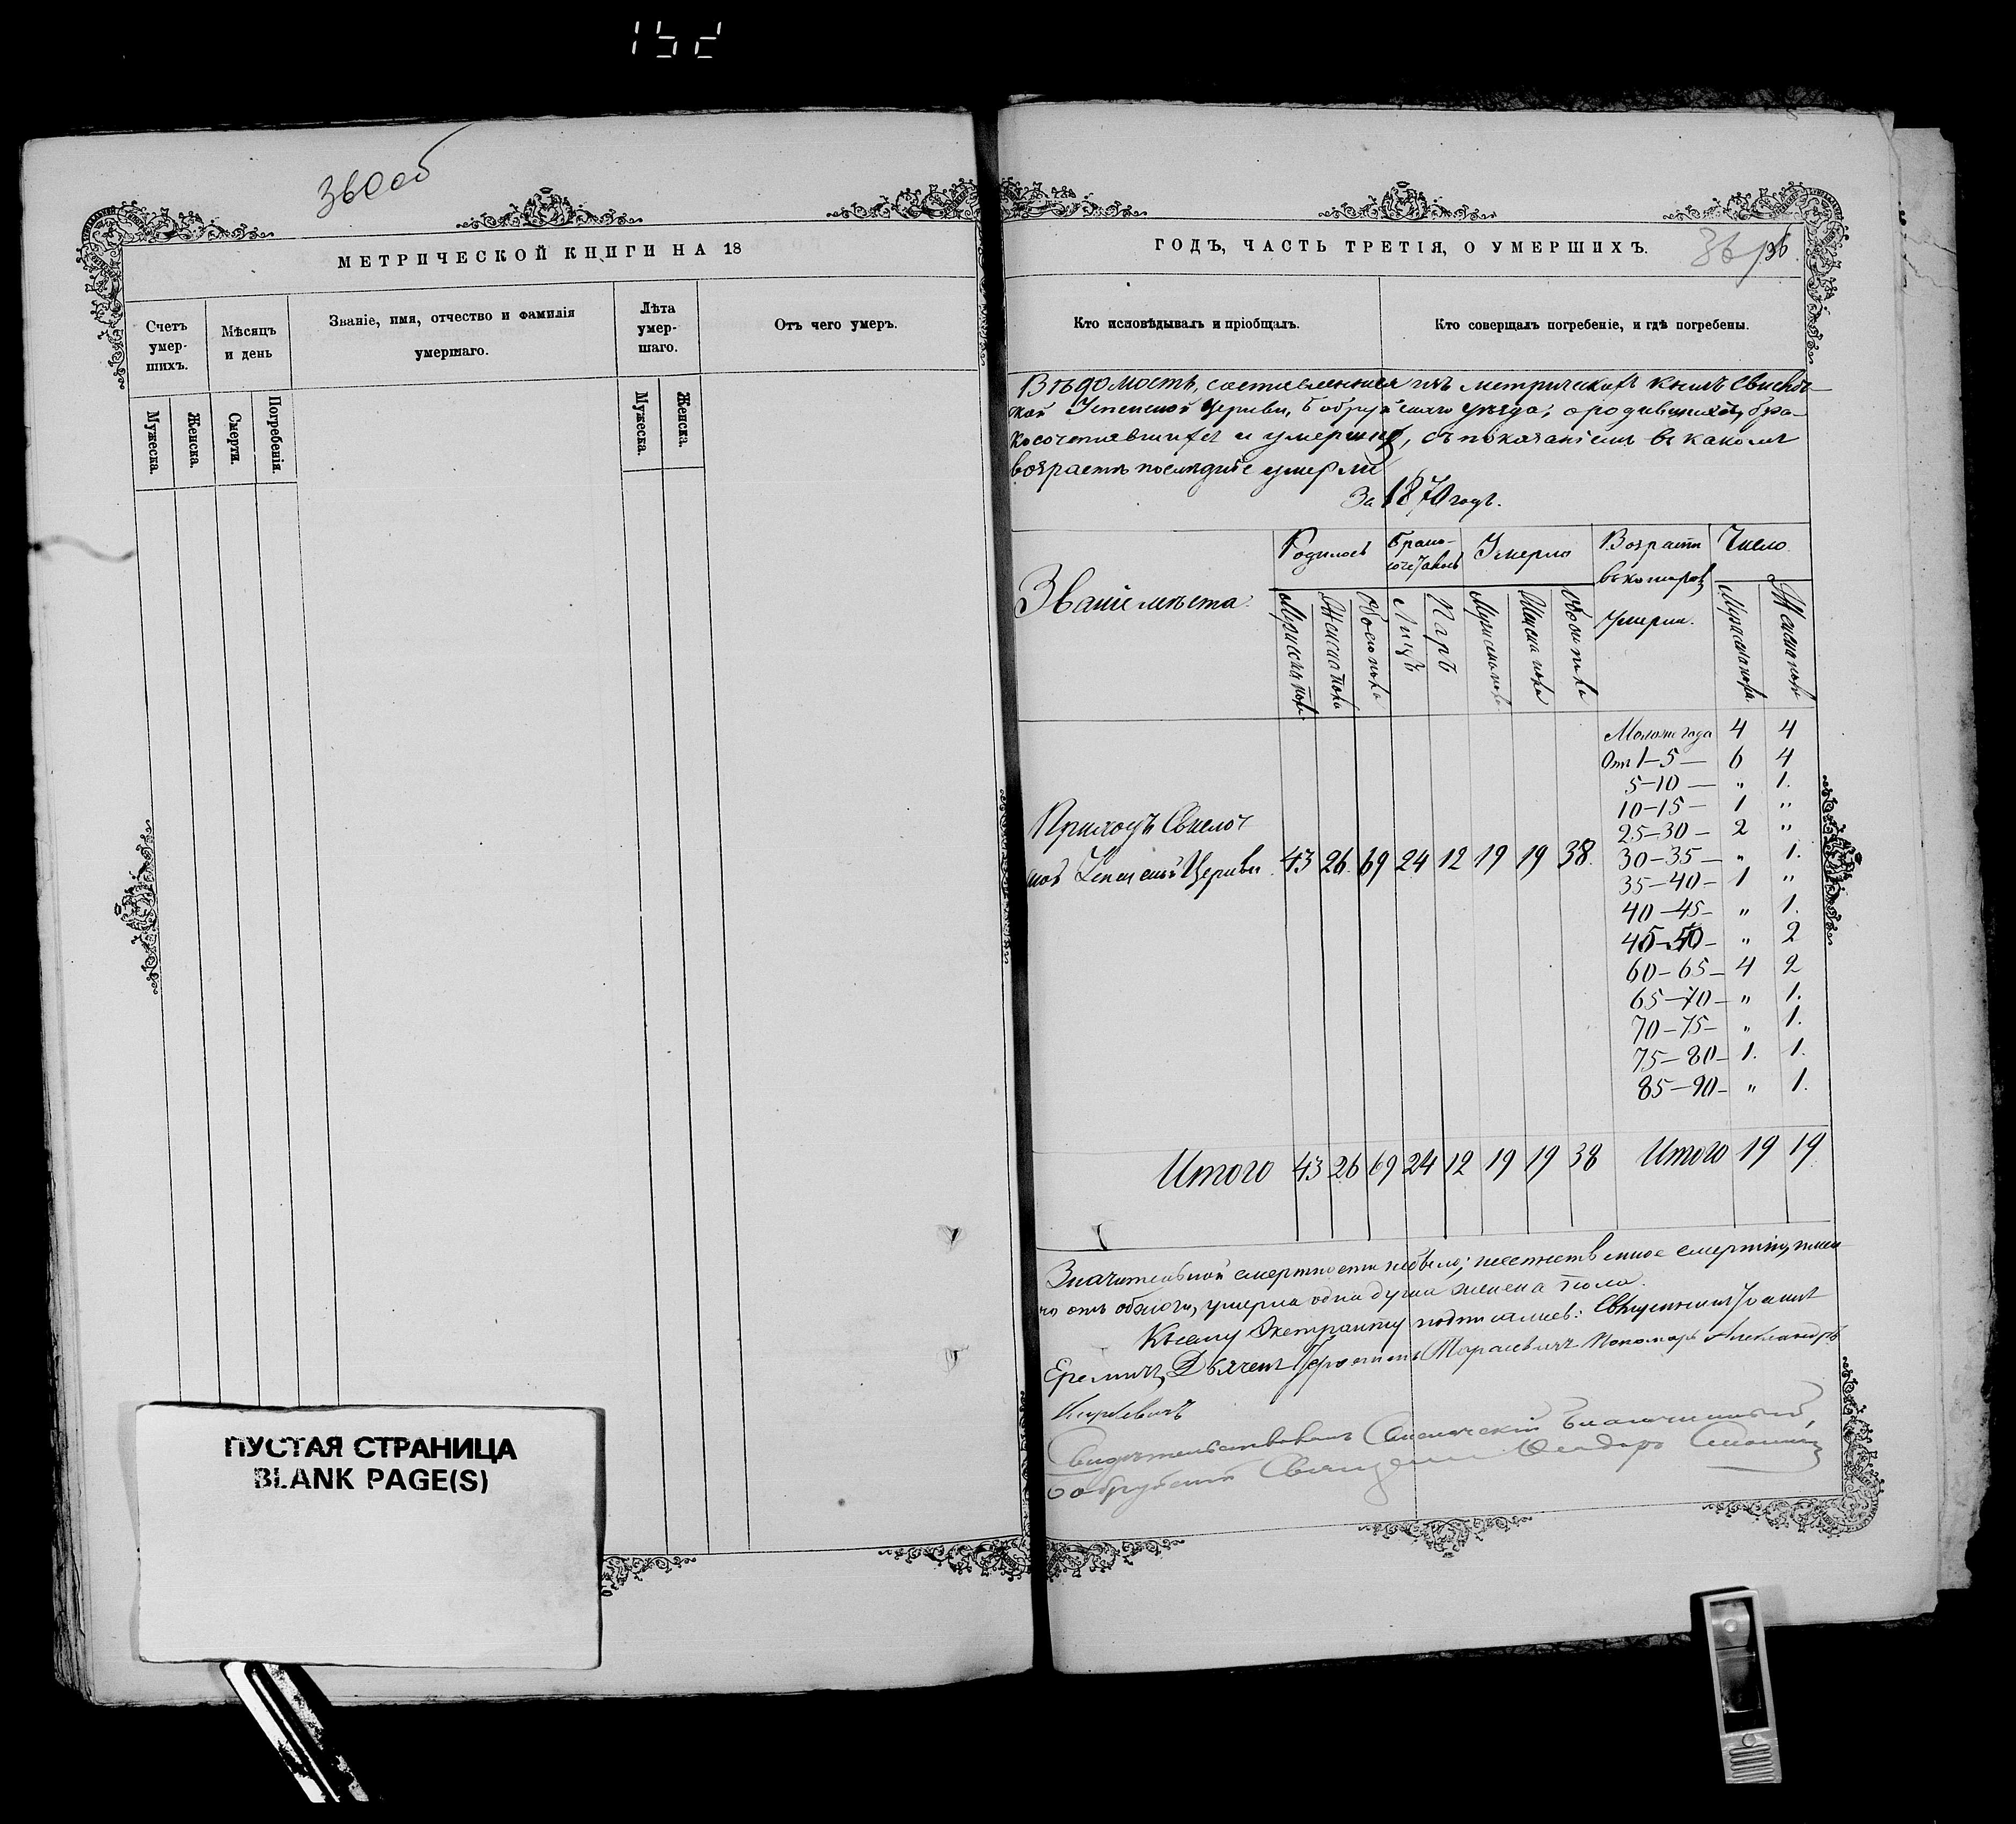 152
360об
МЕТРИЧЕСКОЙ КНИГИ НА 18
Счетъ умер-шихъ.
Мѣсяцъ и день
Званіе, имя, отчество и фамилія умершаго.
Лѣта умер-шаго.
Отъ чего умеръ.
Мужеска.
Женска.
Смерти.
Погребенія.
Мужеска.
Женска.
ПУСТАЯ СТРАНИЦА
BLANK PAGE(S)
ГОДЪ, ЧАСТЬ ТРЕТІЯ, О УМЕРШИХЪ.
Кто исповѣдывалъ и пріобщалъ.
Кто совершалъ погребеніе, и гдѣ погребены.
Вѣдомость, составленная изъ метрическихъ книгъ Свислоч-
кой Успенской Церкви, Бобруйскаго уѣзда, о родившихся, бра-
косочетавшихся и умершихъ, съ показаніемъ въ какомъ
возрастѣ послѣдніе умерли
За 1870 годъ.
Званіе мѣста.
Родилось
Брако-сочеталось
Умерло
Возрастъ въ которомъ умерли.
Число
Мужеска пола
Женска пола
Обоего пола
Лицъ
Паръ
Мужеска пола
Женска пола
Обоего пола
Мужеска пола
Женска пола
Моложе года 4 4
Отъ 1–5 — 6 4
5–10 — " 1.
10–15 — 1 "
25–30 – 2 "
30–35 — " 1.
35–40 – 1 "
40–45 – " 1.
45–50 – " 2
60–65 – 4 2
65–70 – " 1.
70–75 – " 1.
75–80 – 1. 1.
85–90 – " 1.
Приходъ Свислоч
кой Успенской Церкви 43 26 69 24 12 19 19 38.
Итого 43 26 69 24 12 19 19 38 Итого 19 19
Значительной смертности небыло; неестественною смертію, имен
но отъ обжоги, умерла одна душа женска пола.
Къ сему Экстракту подписались: Священникъ Іоаннъ
Еремичъ, Дьячекъ Тарасевичъ Пономарь Александръ
Свидѣтельствовалъ Благочинный,
Бобруйскій Священникъ Ѳеодоръ